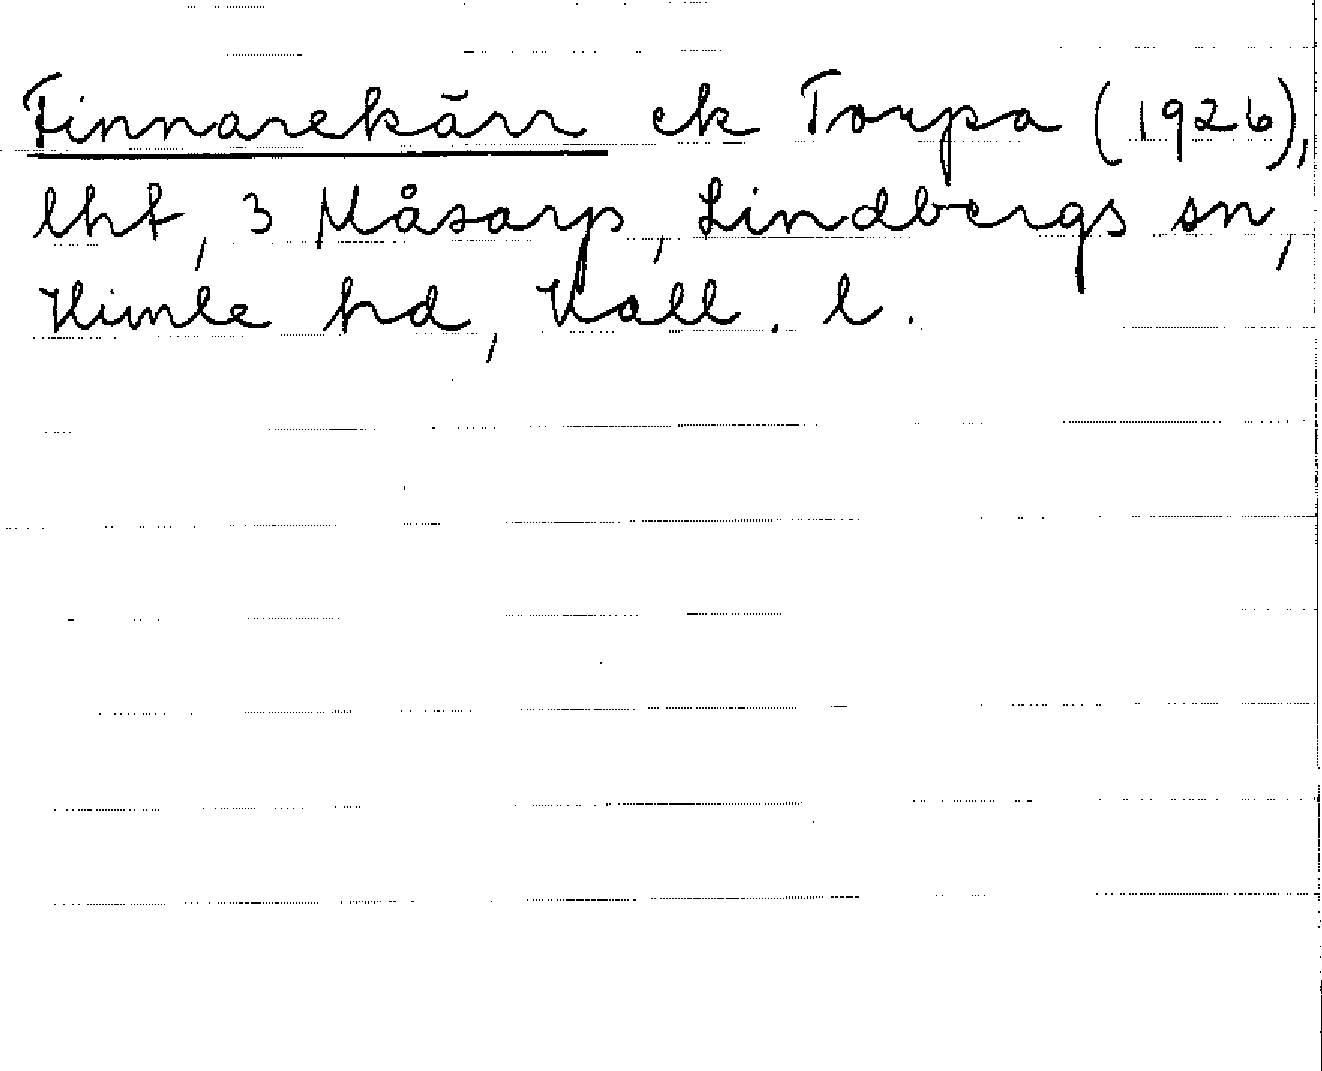 Finnarekärr ek Torpa (1926),
lht, 3 Måsarp, Lindbergs sn,
Himle hd, Hall. l.